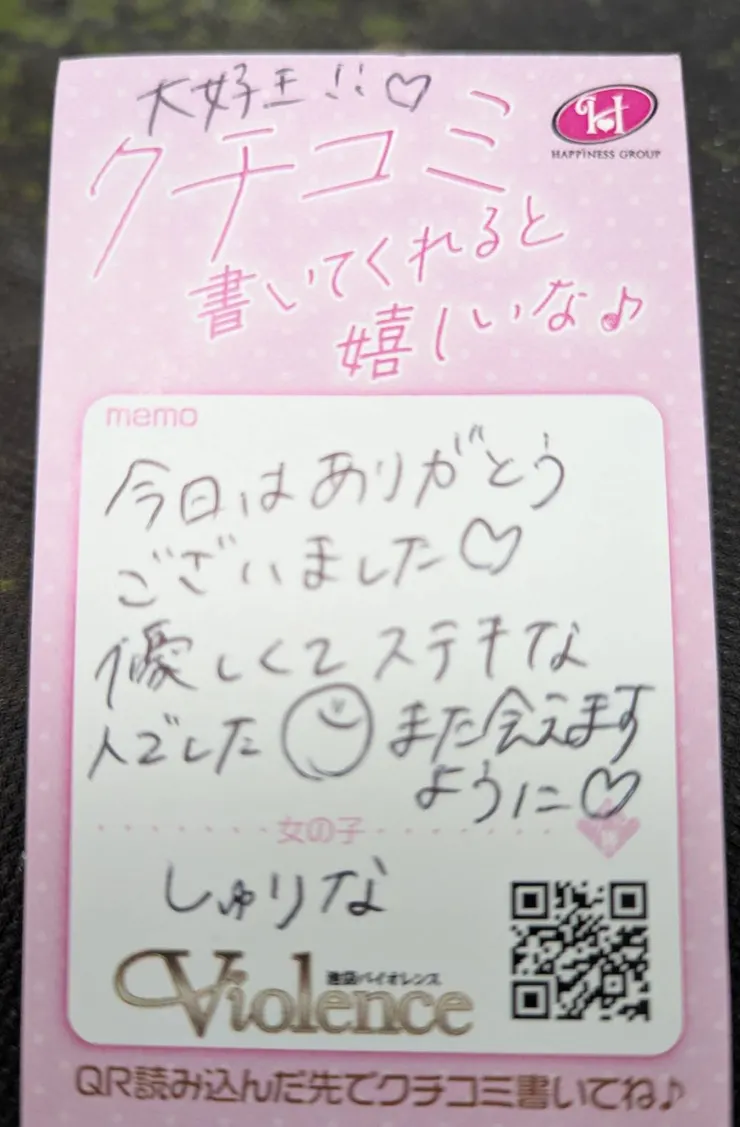 大好き!!♡
H
HAPPINESS GROUP
クチコミ
書いてくれると
嬉しいな♪
memo
今日はありがとう
ございました♡
優しくてステキな
人でした また会えます
ように♡
女の子
しゅりな
池袋バイオレンス
Violence
QR読み込んだ先でクチコミ書いてね♪